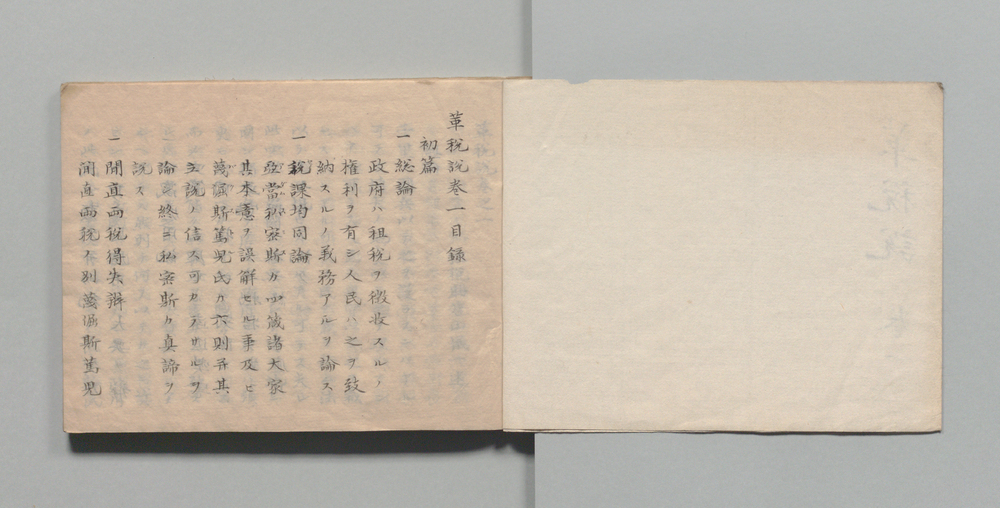 革税説巻一目録
初篇
一総論
政府ハ租税ヲ徴收スルノ
権利ヲ有シ人民ハ之ヲ致
納スルノ義務アルヲ論ス
一税課均同論
亞當私密斯カ四箴諸大家
其本意ヲ誤解セル事及ヒ
蔑爾斯篤児氏カ六則并其
主説ノ信ス可カラサルヲ
論シ終ニ私密斯カ真諦ヲ
説ス
一間直両税得失辯
間直両税ノ別蔑爾斯篤児